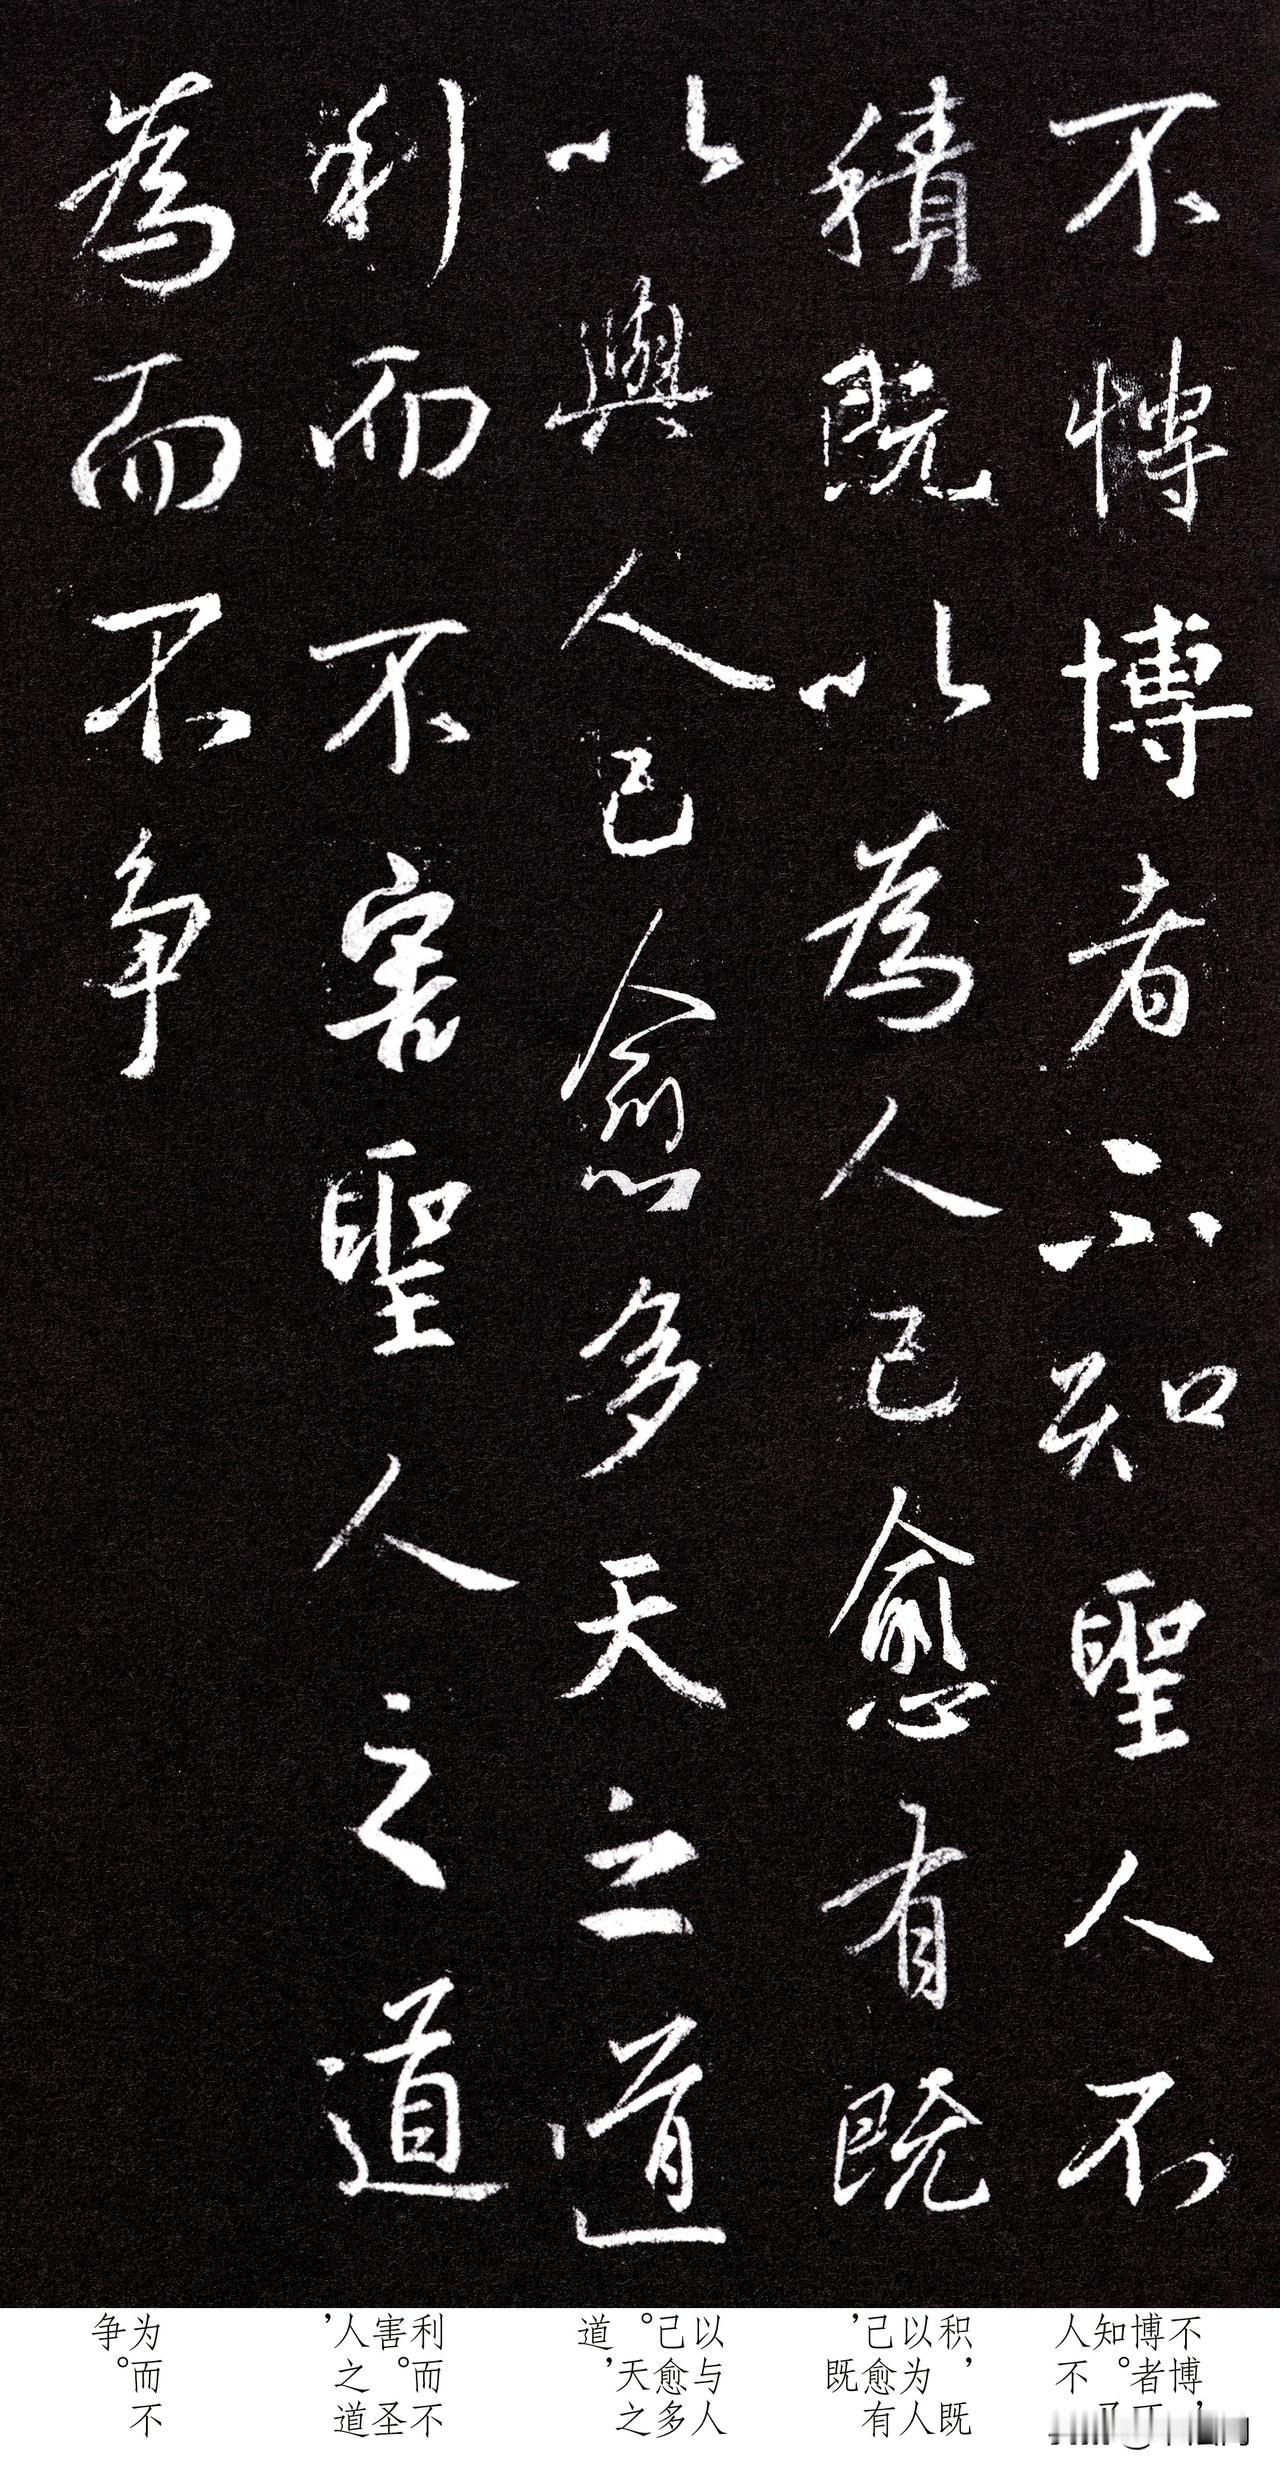 不博博者不知聖人不
積既以為人己愈有既
以與人己愈多天之道
利而不害聖人之道
為而不争
不博，
博者
知。
人不
积，既
以为人
己愈有
，既
以与人
己愈多
。天之
道，
利而不
害。圣
人之道
，
为而不
争。